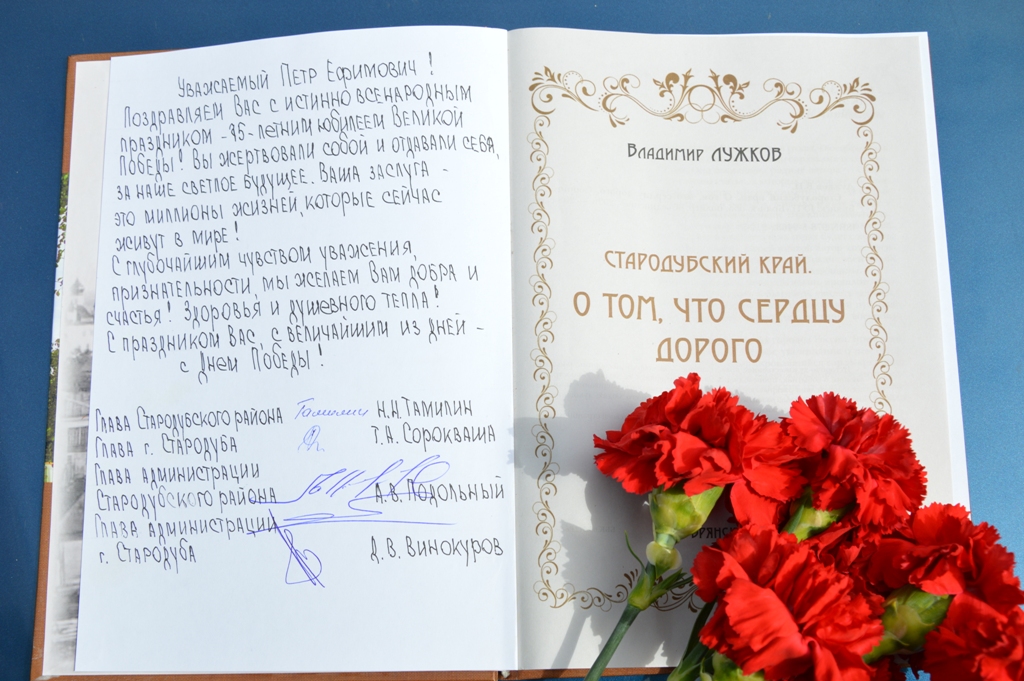 Уважаемый Петр Ефимович!
Поздравляем Вас с истинно всенародным
праздником - 75-летним юбилеем Великой
Победы! Вы жертвовали собой и отдавали себя,
за наше светлое будущее. Ваша заслуга -
это миллионы жизней, которые сейчас
живут в мире!
С глубочайшим чувством уважения,
признательности, мы желаем Вам добра и
счастья! Здоровья и душевного тепла!
С праздником Вас, с величайшим из дней -
с Днем Победы!
Глава Стародубского района Тамилин Н.Н. Тамилин
Глава г. Стародуба Т.А. Сорокваша
Глава администрации
Стародубского района А.В. Подольный
Глава администрации
г. Стародуба Д.В. Винокуров
Владимир ЛУЖКОВ
СТАРОДУБСКИЙ КРАЙ.
О ТОМ, ЧТО СЕРДЦУ
ДОРОГО